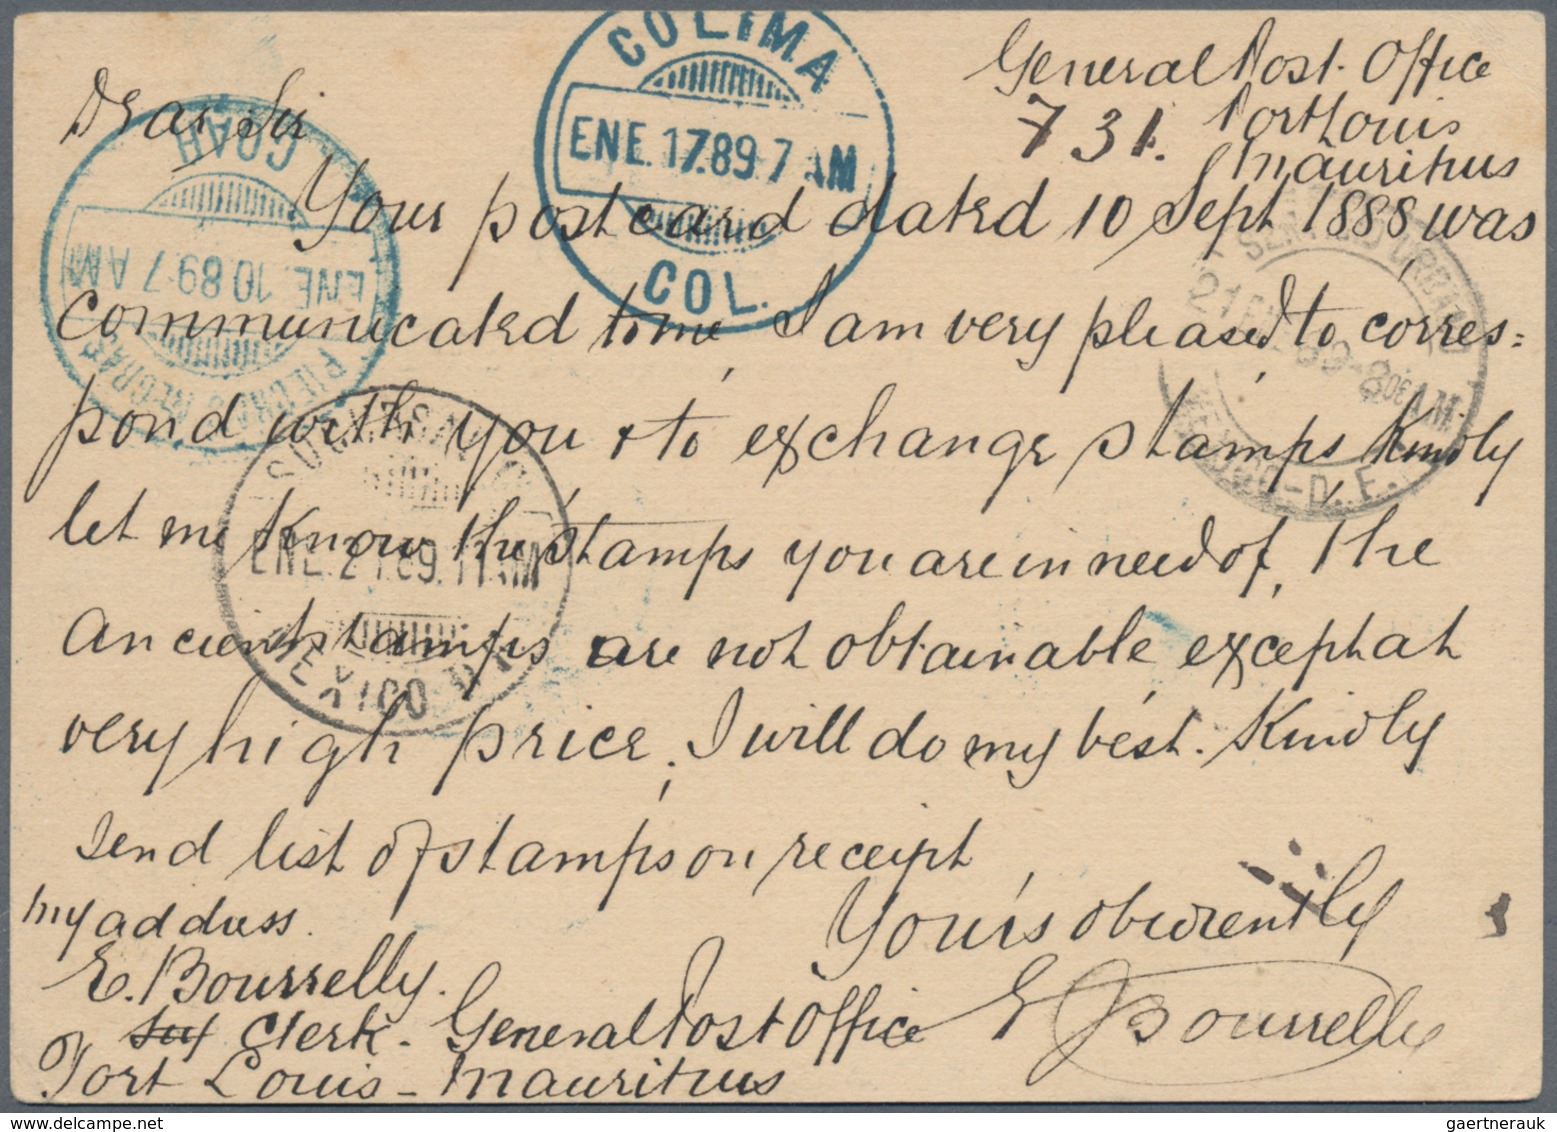 General Post. Office
731. Port Louis
Mauritius
Dear Sir
Your postcard dated 10 Sept 1888 was
communicated to me I am very pleased to corres=
pond with you & to exchange stamps Kindly
let me know the stamps you are in need of, the
ancient stamps are not obtainable except at
very high price. I will do my best. Kindly
send list of stamps on receipt
Yours obediently
E Bourrelly
my address.
E. Bourrelly.
Clerk. General Post Office
Port Louis - Mauritius
COLIMA
ENE. 17.89. 7 AM
COL.
COAH
ENE. 10.89. 7 AM
PIEDRAS NEGRAS
ENE. 21.89. 11 AM
MEXICO D.F.
21 89-8 AM.
MEXICO-D.F.
gaertnerauk @ delcampe.net